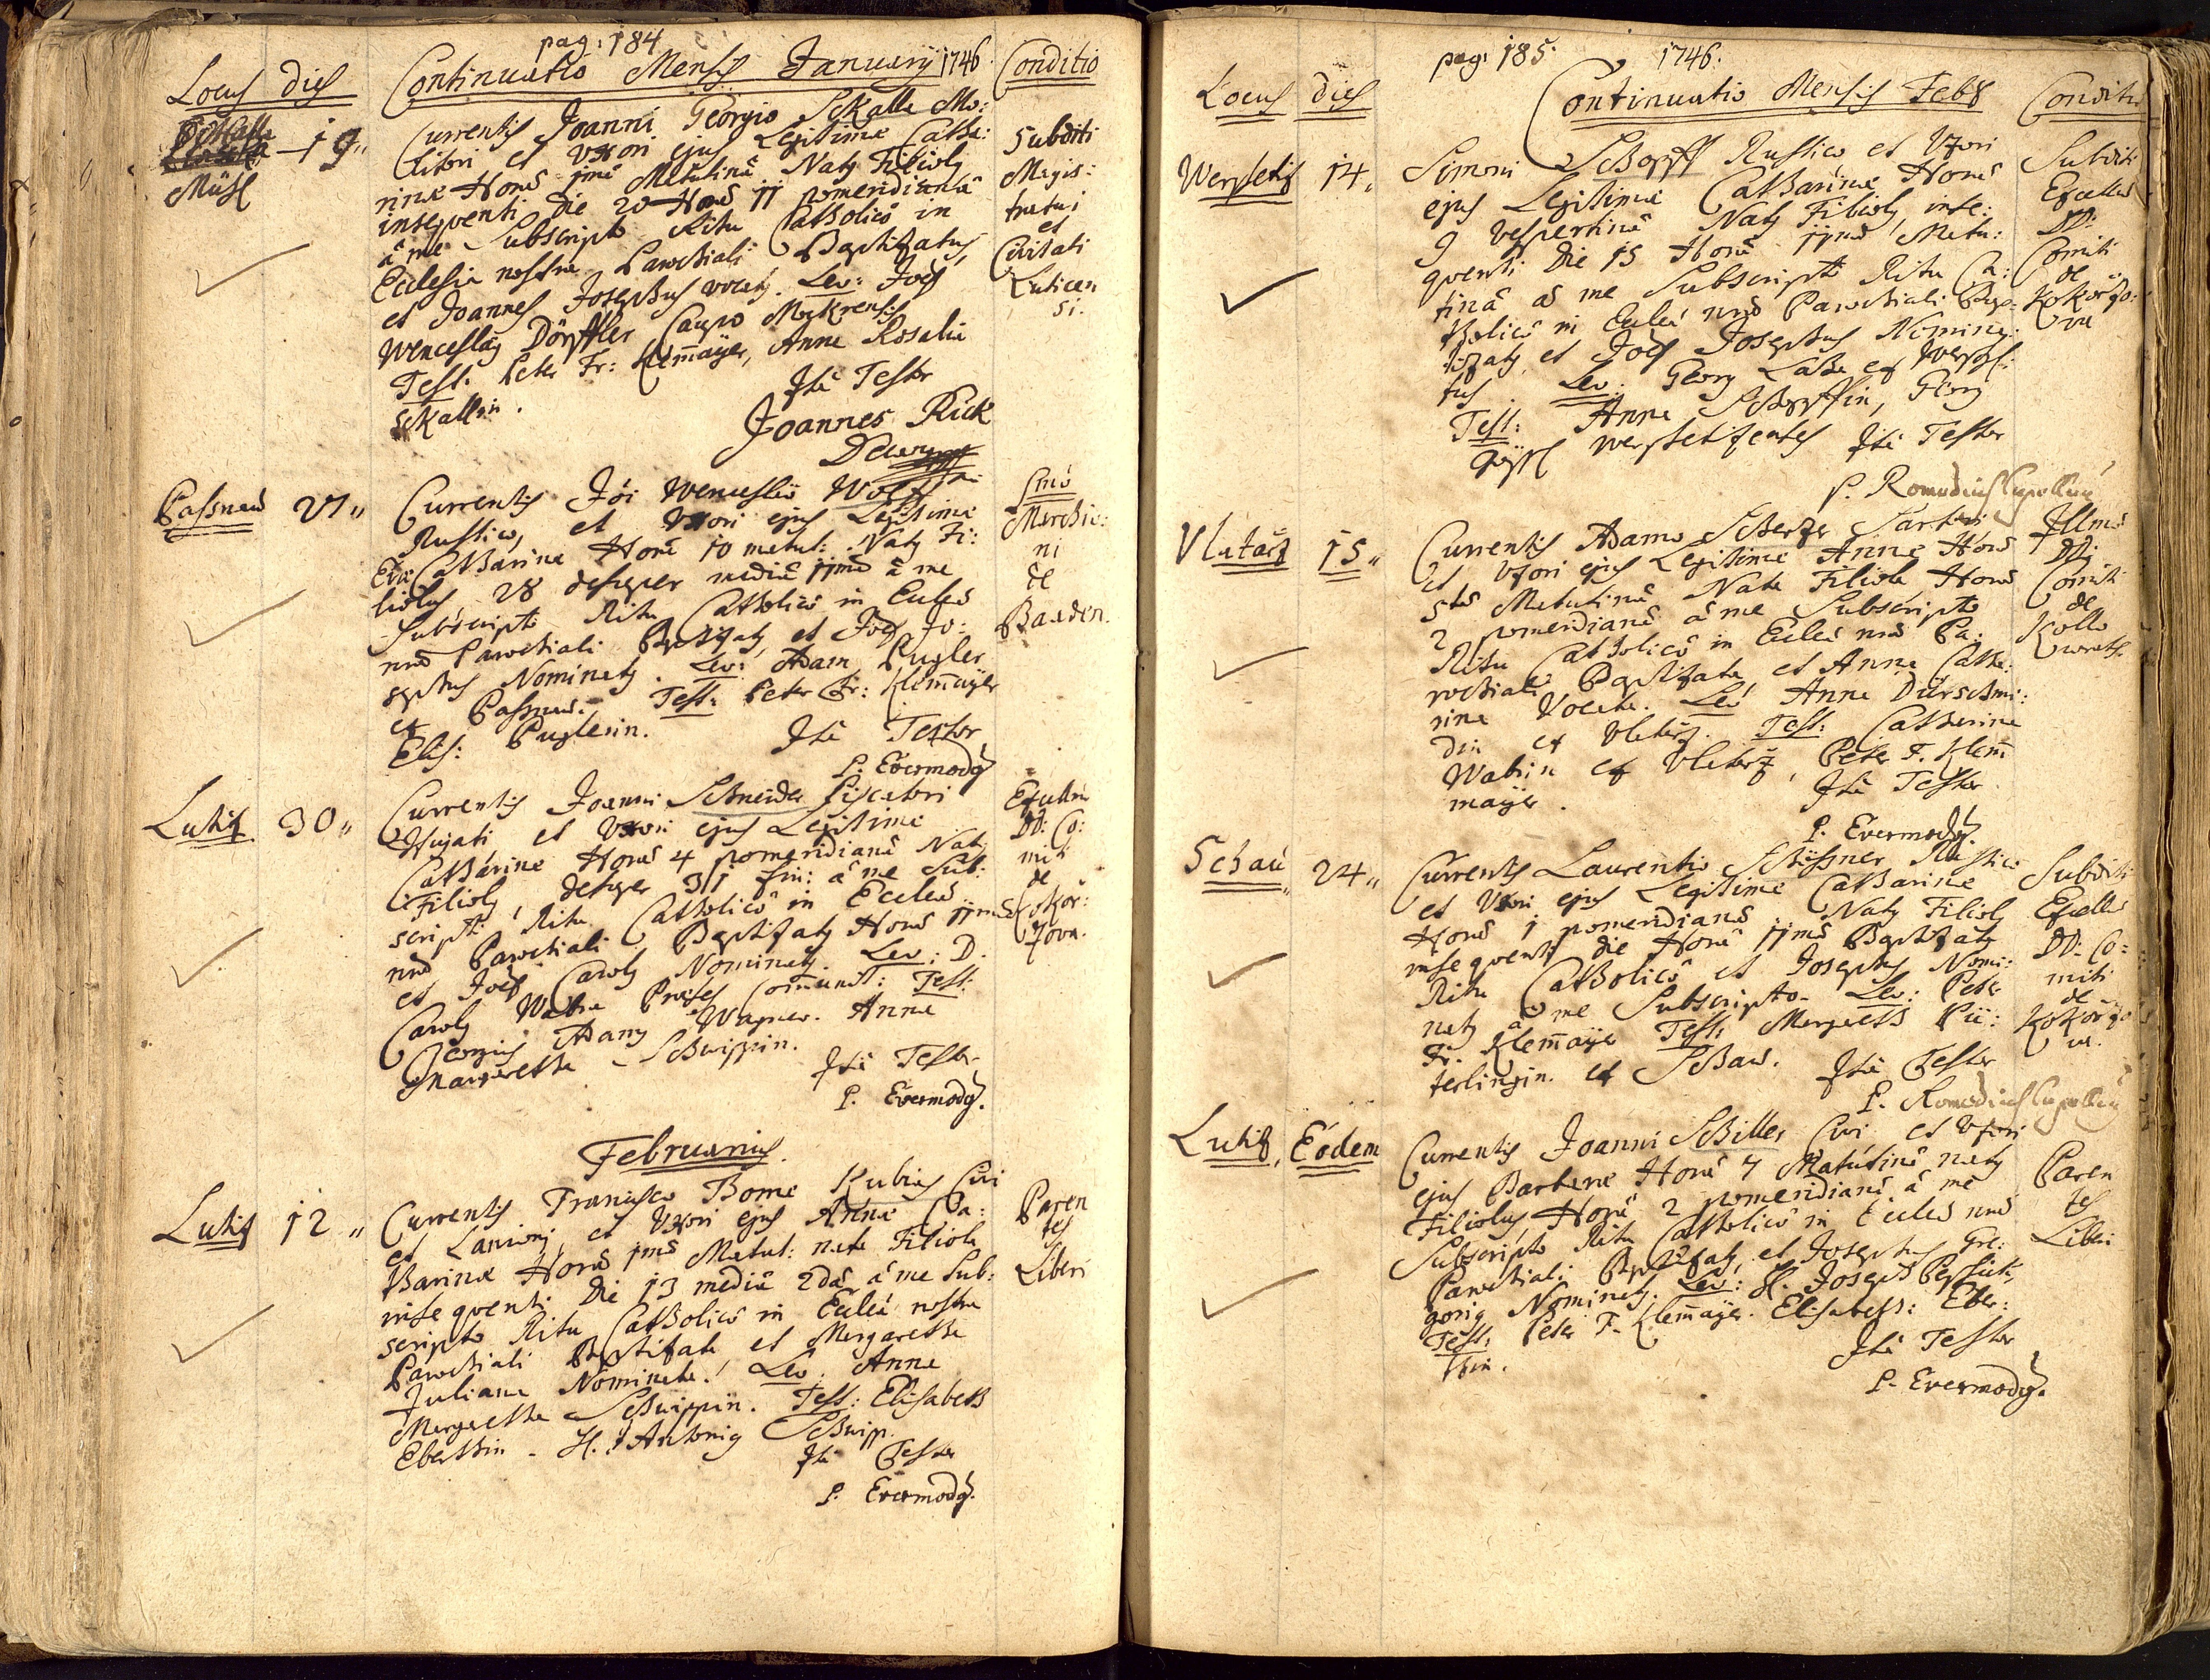 pag: 184
Locus dies Continuatio Mensis Januarij 1746 Conditio
Mühl
19 Currentis Joanni Georgio Skalla Mo:
litori et Uxori ejus Legitimae Catha:
rinae Horâ 1mâ Matutinâ Natus Filiolus
insequenti die 20 Horâ 11 pomeridianâ
â me Subscripto Ritu Catholicô in
Ecclesia nostra Parochiali Baptizatus,
et Joannes Josephus vocatus. Lev: Joës
Wenceslaus Dörffler Caupo
Test: Peter Fr: Klem̄aÿer, Anna Rosalia
Skallin.
Ita Testor
Joannes Rick
Subditi
Magis:
tratui
et
Civitati
Luticen
si.
Passnau 27 Currentis Jōi Wenceslaô Wolff
Rustico, et Uxori ejus Legitimae
Evae Catharinae Horâ 10 matut: Natus Fi:
liolus, 28 desuper mediâ 11mâ â me
Subscripto Ritu Catholicô in Eccleâ
nrâ Parochiali Baptizatus, et Joës Jo:
sephus Nominatus. Lev: Adam Pugler
ex Passnau. Test: Peter Fr: Klem̄aÿer
Elis: Puglerin.
Ita Testor
P. Evermodus
Smô
Marchio:
ni
de
Baaden.
Lutitz 30 Currentis Joanni Schneider Piscatori
Hujati, et Uxori ejus Legitimae
Catharinae Horâ 4 pomeridianâ Natus
Filiolus, desuper 31 hui: â me Sub:
scripto Ritu Catholicô in Eccleâ
nrâ Parochiali Baptizatus Horâ 11mâ
et Joës Carolus Nominatus. Lev: D.
Carolus Watra Praeses Com̄unit: Test:
Georgius Adamus Wagner. Anna
Margaretha Schwippin.
Ita Testor
P. Evermodus.
DD: Co:
miti
de
Kokor:
zova.
Februarius.
Lutitz 12 Currentis Francisco Thoma Kubias Civi
et Lanioni, et Uxori ejus Annae Ca:
tharinae Horâ 1mâ Matut: nata Filiola
insequenti Die 13 mediâ 2dâ, â me Sub:
scripto Ritu Catholicô in Eccleâ nostra
Parochiali Baptizata et Margaretha
Juliana Nominata. Lev: Anna
Margaretha Schwippin. Test: Elisabeth
Eberthin. H. Antonius Schwipp.
Ita Testor
P. Evermodus.
Paren
tes
Liberi
pag: 185. 1746.
Locus dies Continuatio Mensis Feb8 Conditio
14 Simoni Schopff Rustico et Uxori
ejus Legitimae Catharinae Horâ
9 vespertinâ Natus Filiolus, inse:
quenti Die 15 Horâ 11mâ Matu:
tinâ â me Subscripto Ritu Ca:
tholicô in Eccleâ nrâ Parochiali Bap:
tizatus, et Joës Josephus Nomina:
tus. Lev: Georg
Test: Anna Schopffin, Georg
Ita Testor
P. Romedius
Subditi
DD:
Comiti
de
Kokorzo:
va
Vlutarz 15 Currentis Adamo Scherzer Sartori
et Uxori ejus Legitimae Annae Horâ
5tâ Matutinâ Nata Filiola Horâ
2 pomeridianâ â me Subscripto
Ritu Catholicô in Eccleâ nrâ Pa:
rochiali Baptizata, et Anna Catha:
rina Vocata. Lev: Anna Dürschmi:
din ex Vlutarz. Test: Catharina
Watzin ex Vlutarz, Peter F. Klem̄
maÿer.
Ita Testor
P. Evermodus
Illmô
Comiti
de
Kollo
wrath.
Schau 24 Currentis Laurentio Rustico
et Uxori ejus Legitimae Catharinae
Horâ 1 pomeridianâ Natus Filiolus
insequenti die Horâ 11mâ Baptizatus
Ritu Catholicô et Josephus Nomi:
natus â me Subscripto. Lev: Peter
Fr. Klem̄aÿer Test: Margareth Pü:
terlingin. ex Schau.
Ita Testor
P. Romedius
Subditi
DD: Co:
miti
de
Kokorzo
va.
Lutitz, Eodem Currentis Joanni Schiller Civi et Uxori
ejus Barbarae Horâ 7 Matutinâ natus
Filiolus Horâ 2 pomeridianâ â me
Subscripto Ritu Catholicô in Eccleâ nrâ
Parochiali Baptizatus, et Josephus Gre:
gorius Nominatus. Lev: H. Joseph
Test: Peter F. Klem̄aÿer. Elisabeth: Eber:
thin.
Ita Testor
P. Evermodus.
Paren
tes
Liberi